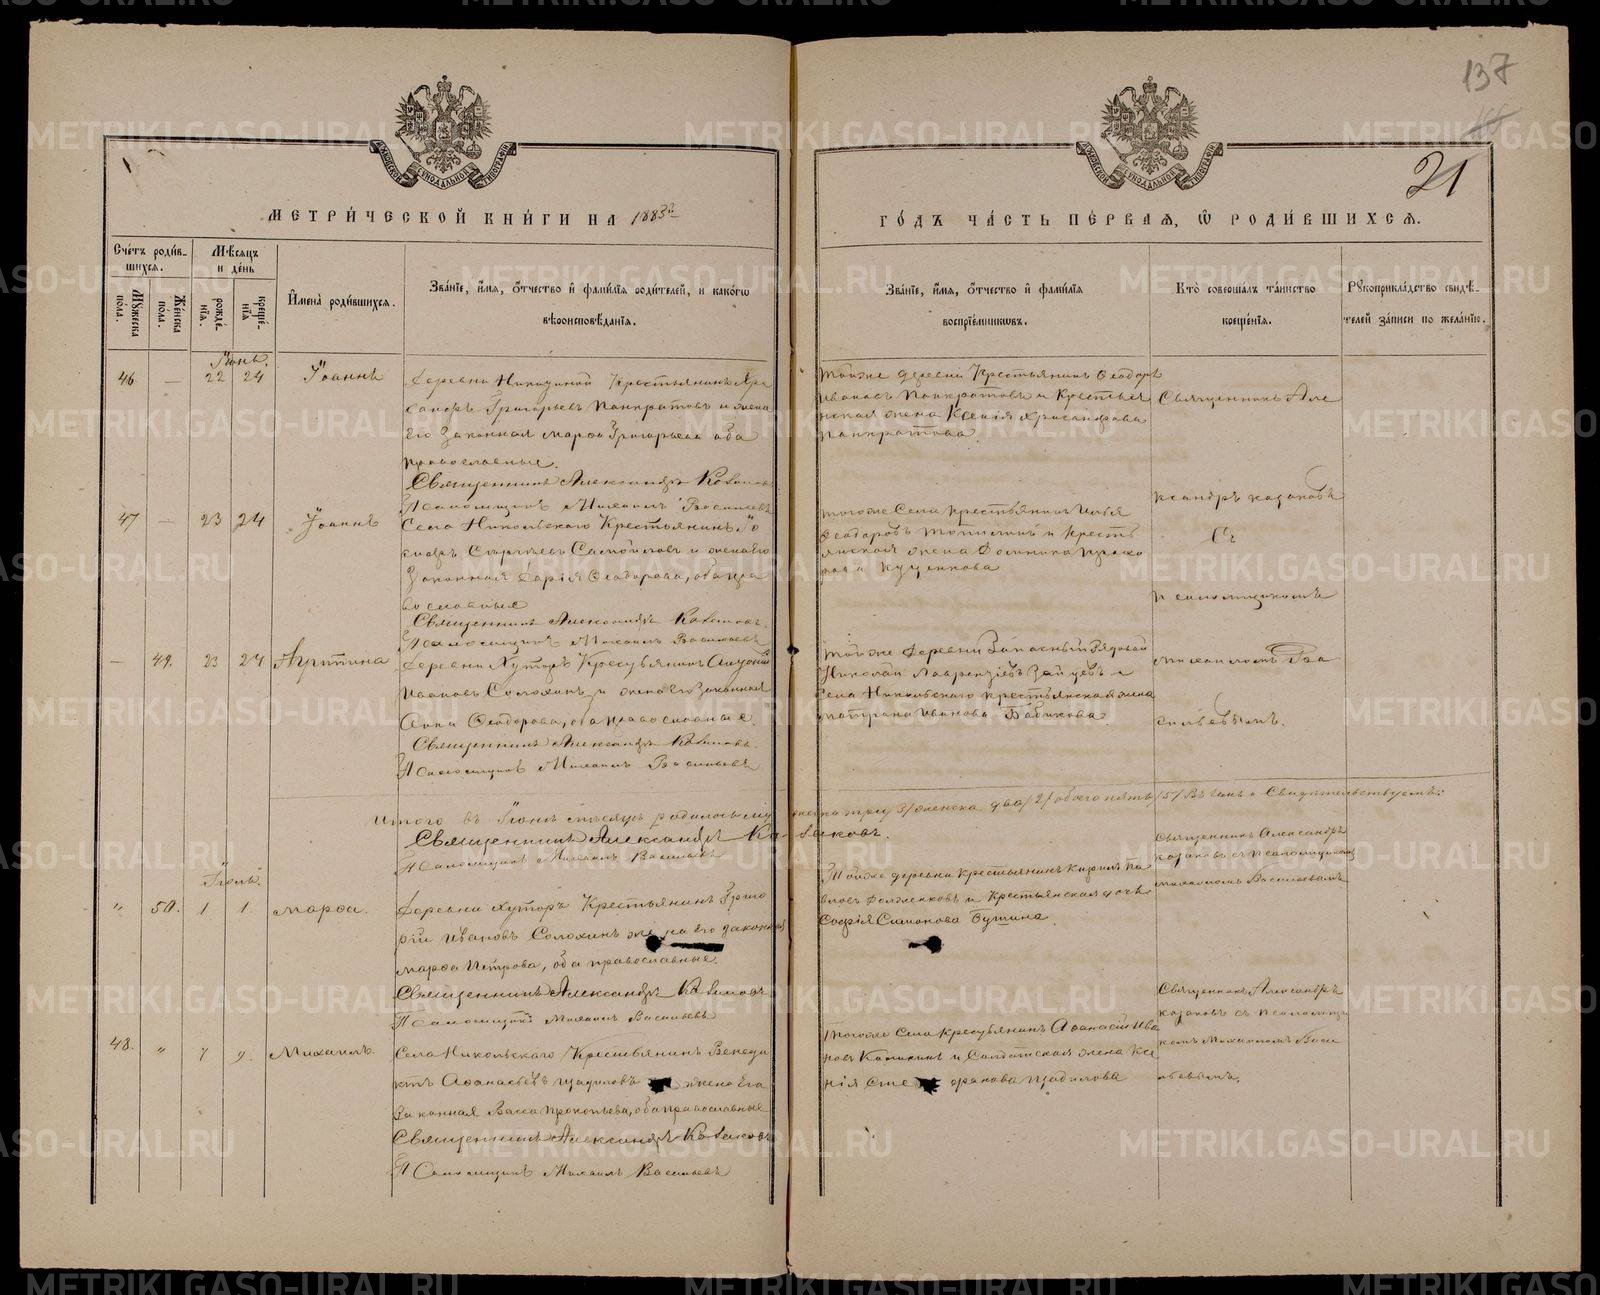 137
21
МЕТРИЧЕСКОЙ КНИГИ НА 1883й
ГОДЪ ЧАСТЬ ПЕРВАЯ, Ѡ РОДИВШИХСЯ.
Счетъ родив-
шихся.
Мужеска пола.
Женска пола.
Мѣсяцъ и день
рожде-
нія.
креще-
нія
Имена родившихся.
Званіе, имя, отчество и фамилія родителей, и какогѡ
вѣроисповѣданія.
Званіе, имя, отчество и фамилія
воспріемникѡвъ.
Кто совершалъ таинство
крещенія.
Рукоприкладство свидѣ-
телей записи по желанію.
Іюнь.
46 — 22 24 Іоаннъ
Деревни Никодиной Крестьянинъ
Григорьевъ Панкратовъ и жена
Его Законная Марѳа Григорьева оба
православные.
Священникъ Александръ Казаковъ
Псаломщикъ Михаилъ Васильевъ
Тойже деревни Крестьянинъ Ѳеодоръ
Ивановъ Панкратовъ и Крестья
нская жена Ксенія Хрисанфова
Панкратова.
Священникъ Але
ксандръ Казаковъ
Съ
Псаломщикомъ
Михаиломъ Ва
сильевымъ.
47 — 23 24 Іоаннъ
Села Никольскаго Крестьянинъ
Сергѣевъ Самойловъ и жена его
Законная Дарія Ѳеодорова, оба пра
вославные
Священникъ Александръ Казаковъ.
Псаломщикъ Михаилъ Васильевъ
Тогоже Села Крестьянинъ Илья
Ѳеодоровъ Топилинъ и Кресть
янская жена Домника
Куценкова
— 49. 23 24 Агрипина
Деревни Хуторъ Крестьянинъ
Ивановъ Солохинъ и жена Его Законная
Анна Ѳеодорова, оба православные.
Священникъ Александръ Казаковъ.
Псаломщикъ Михаилъ Васильевъ
Тойже Деревни Запасный Рядовой
Николай Лаврентіевъ Зайцевъ и
Села Никольскаго крестьянская жена
Матрона Иванова Бабикова.
Итого въ Іюнѣ мѣсяцѣ родилось мужеска три /3/ женска два /2/ обоего пять /5/ Въ чемъ и Свидѣтельствуемъ:
Священникъ Александръ Казаковъ.
Псаломщикъ Михаилъ Васильевъ
Іюль.
„ 50. 1. 1. Марѳа.
Деревни Хуторъ Крестьянинъ Григо
рій Ивановъ Солохинъ жена Его законная
Марѳа Петрова, оба православные.
Священникъ Александръ Казаковъ
Псаломщикъ Михаилъ Васильевъ
Тойже деревни Крестьянинъ Кирилъ Па
вловъ Долженковъ и Крестьянская дочь
Софія Симонова Бушина.
Священникъ Александръ
Казаковъ съ Псаломщикомъ
Михаиломъ Васильевымъ
48. „ 7 9. Михаилъ.
Села Никольскаго Крестьянинъ Венеди
ктъ Аѳанасьевъ Щадиловъ жена Его
Законная Васса Прокопьева, оба православные
Священникъ Александръ Казаковъ
Псаломщикъ Михаилъ Васильевъ
Тогоже Села Крестьянинъ Аѳанасій Ива
новъ Калининъ и Солдатская жена Ксе
нія Сте фанова Щадилова
Священникъ Александръ
Казаковъ съ Псаломщи
комъ Михаиломъ Васи
льевымъ.
METRIKI.GASO-URAL.RU